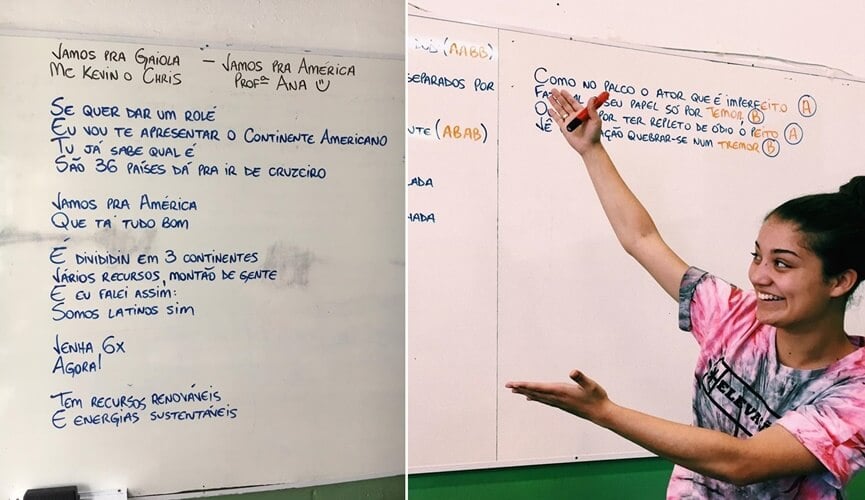 Vamos pra Gaiola – Vamos pra América
Mc Kevin o Chris Profª Ana
Se quer dar um rolé
Eu vou te apresentar o Continente Americano
Tu já sabe qual é
São 36 países dá pra ir de cruzeiro
Vamos pra América
Que tá tudo bom
É dividin em 3 continentes
Vários recursos, montão de gente
E eu falei assim:
Somos latinos sim
Venha 6x
Agora!
Tem recursos renováveis
E energias sustentáveis
(AABB)
separados por
(ABAB)
Como no palco o ator que é imperfeito A
seu papel só por temor B
por ter repleto de ódio o peito A
Vê quebrar-se num tremor B